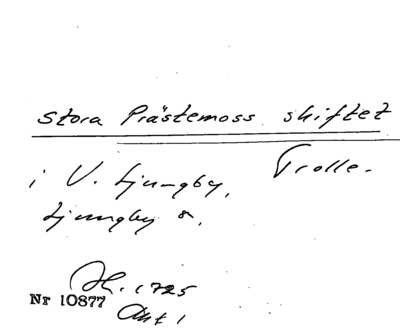 stora Prästemoss skiftet
i V. Ljungby, Trolle-
Ljungby s.
H. 1725
Nr 10877
Akt 1